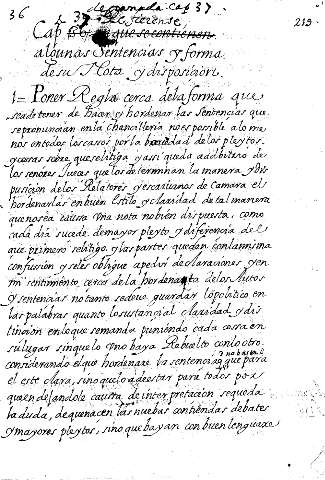 36
de manpela cap 37
213
Cap 37 en que se contienen
algunas Sentencias y forma
de su Nota y disposicion.
1= Poner Regla cerca de la forma que
se ade tener de hacer y hordenar las Sentencias que
se pronuncian en la Chancilleria no es posible alo me
nos en todos los casos por la bariedad de los pleytos
y cosas sobre que se litiga y assi queda a de bitrio de
los señores Jueces que los determinan la manera y dis
pusicion de los Relatores y escrivanos de Camara el
hordenarlas en buen estilo y claridad de tal manera
que no sea causa una nota no bien dispuesta, como
cada dia sucede. de mayor pleyto y diferencia del
que primero se litigo, y las partes quedan con la misma
confussion y seles obligue a pedir declaraciones y en
mi sentimiento cerca de la hordenanza delos Autos
y sentencias no tanto se deve guardar lo politico en
las palabras quanto lo sustancial claridad y dis
tincion en lo que se manda puniendo cada cosa en
su lugar sin que lo uno baya Rebuelto con lo otro.
considerando el que hordenare la sentencia que no basta que para
el este clara, sino que lo a de estar para todos por
que en dejandole causa de interpretacion se queda
la duda, de que nacen las nuebas contiendas debates
y mayores pleytos, sino que bayan con buen lenguaxe